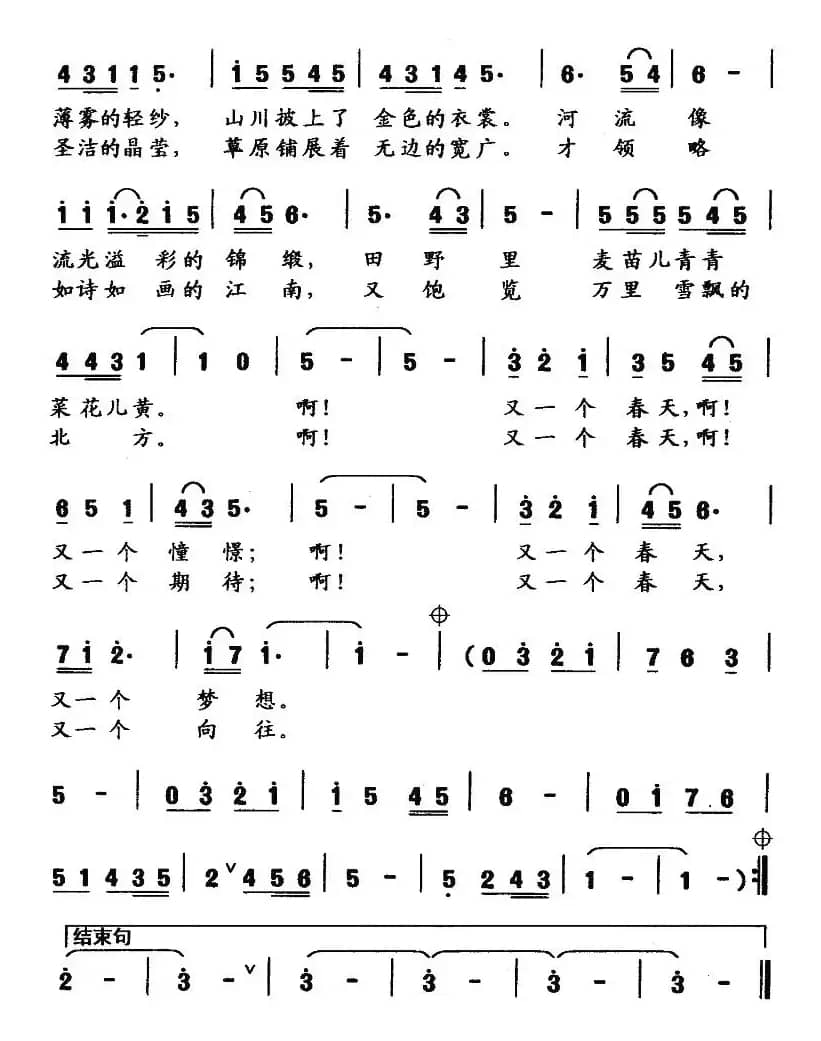 4 3 1 1 5· | i 5 5 4 5 | 4 3 1 4 5· | 6· 5 4 | 6 - |
薄雾的轻纱， 山川披上了 金色的衣裳。 河 流 像
圣洁的晶莹， 草原铺展着 无边的宽广。 才 领 略
i i i· 2 i 5 | 4 5 6· | 5· 4 3 | 5 - | 5 5 5 5 4 5 |
流光溢 彩的 锦 缎， 田 野 里 麦苗儿青青
如诗如 画的 江 南， 又 饱 览 万里 雪飘的
4 4 3 1 | 1 0 | 5 - | 5 - | 3 2 i | 3 5 4 5 |
菜花儿黄。 啊！ 又一个 春天，啊！
北 方。 啊！ 又一个 春天，啊！
6 5 1 | 4 3 5· | 5 - | 5 - | 3 2 i | 4 5 6· |
又一个 憧 憬； 啊！ 又一个 春 天，
又一个 期 待； 啊！ 又一个 春 天，
7 i 2· | i 7 i· | i - | (0 3 2 i | 7 6 3 |
又一个 梦 想。
又一个 向 往。
5 - | 0 3 2 i | i 5 4 5 | 6 - | 0 i 7 6 |
5 1 4 3 5 | 2 ∨ 4 5 6 | 5 - | 5 2 4 3 | 1 - | 1 - ) :‖
结束句
2 - | 3 - ∨ | 3 - | 3 - | 3 - | 3 - ‖